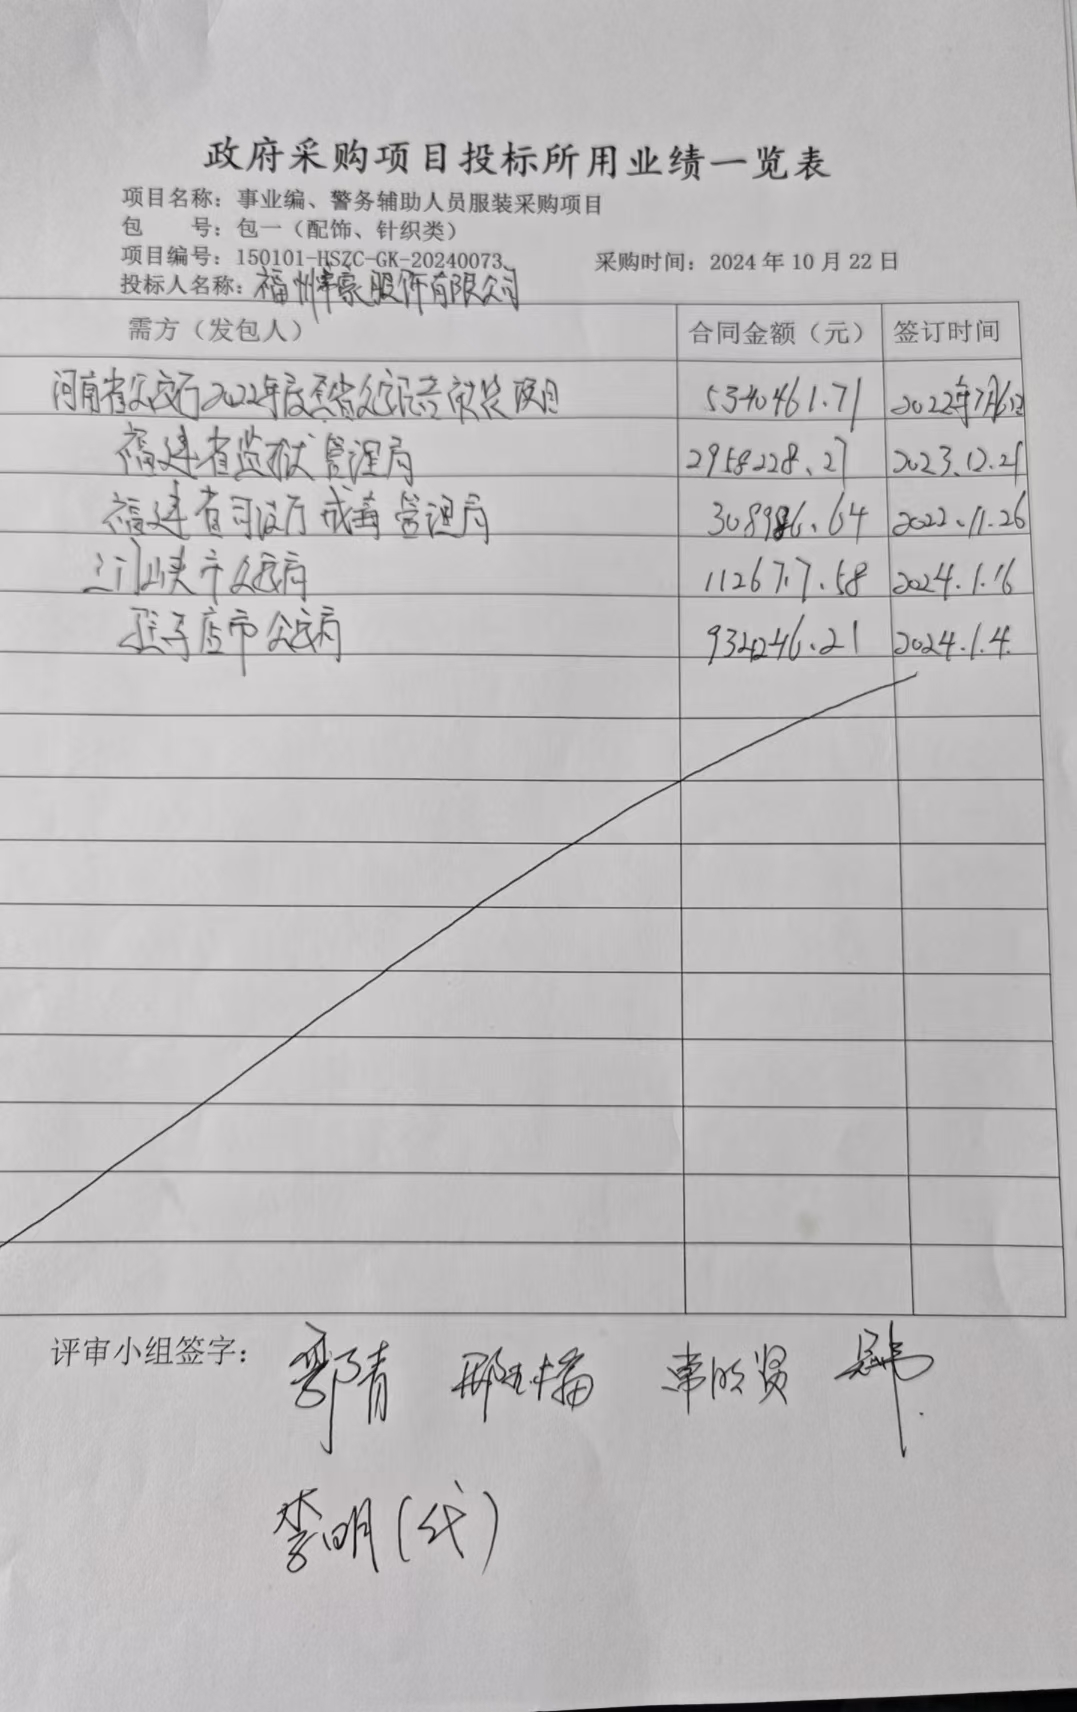 政府采购项目投标所用业绩一览表
项目名称：事业编、警务辅助人员服装采购项目
包　　号：包一（配饰、针织类）
项目编号：150101-HSZC-GK-20240073 采购时间：2024年10月22日
投标人名称：福州豪股份有限公司
需方（发包人） 合同金额（元） 签订时间
河南省公安厅2022年度全省公安民警被装项目 5340461.71 2022年7月6日
福建省监狱管理局 2958228.27 2023.12.21
福建省司法厅戒毒管理局 308986.64 2022.11.26
三门峡市公安局 112677.58 2024.1.16
驻马店市公安局 932246.21 2024.1.4.
评审小组签字：
郭青
李明（代）